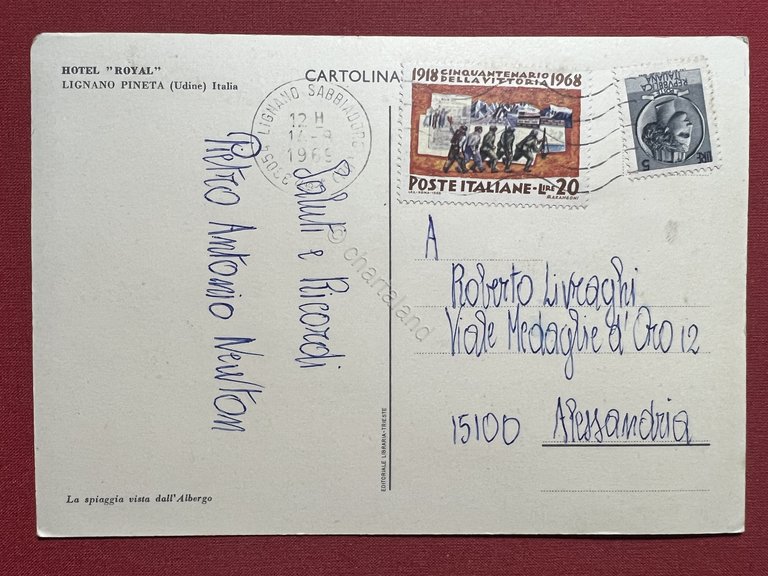 HOTEL "ROYAL"
LIGNANO PINETA (Udine) Italia
CARTOLINA
33054 LIGNANO SABBIADORO
12 H
1969
1918 CINQUANTENARIO 1968
DELLA VITTORIA
POSTE ITALIANE · LIRE 20
I.P.S.-ROMA-1968
MARANGONI
REPUBBLICA
ITALIANA
LIRE 5
Saluti e Ricordi
Pietro Antonio Newton
A
Roberto Livraghi
Viale Medaglie d'Oro 12
15100 Alessandria
© charraland
EDITORIALE LIBRARIA-TRIESTE
La spiaggia vista dall'Albergo